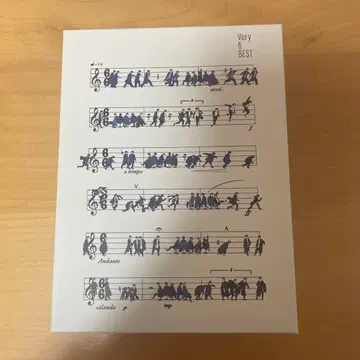 Very
6
BEST
accel.
a tempo
Andante
calando